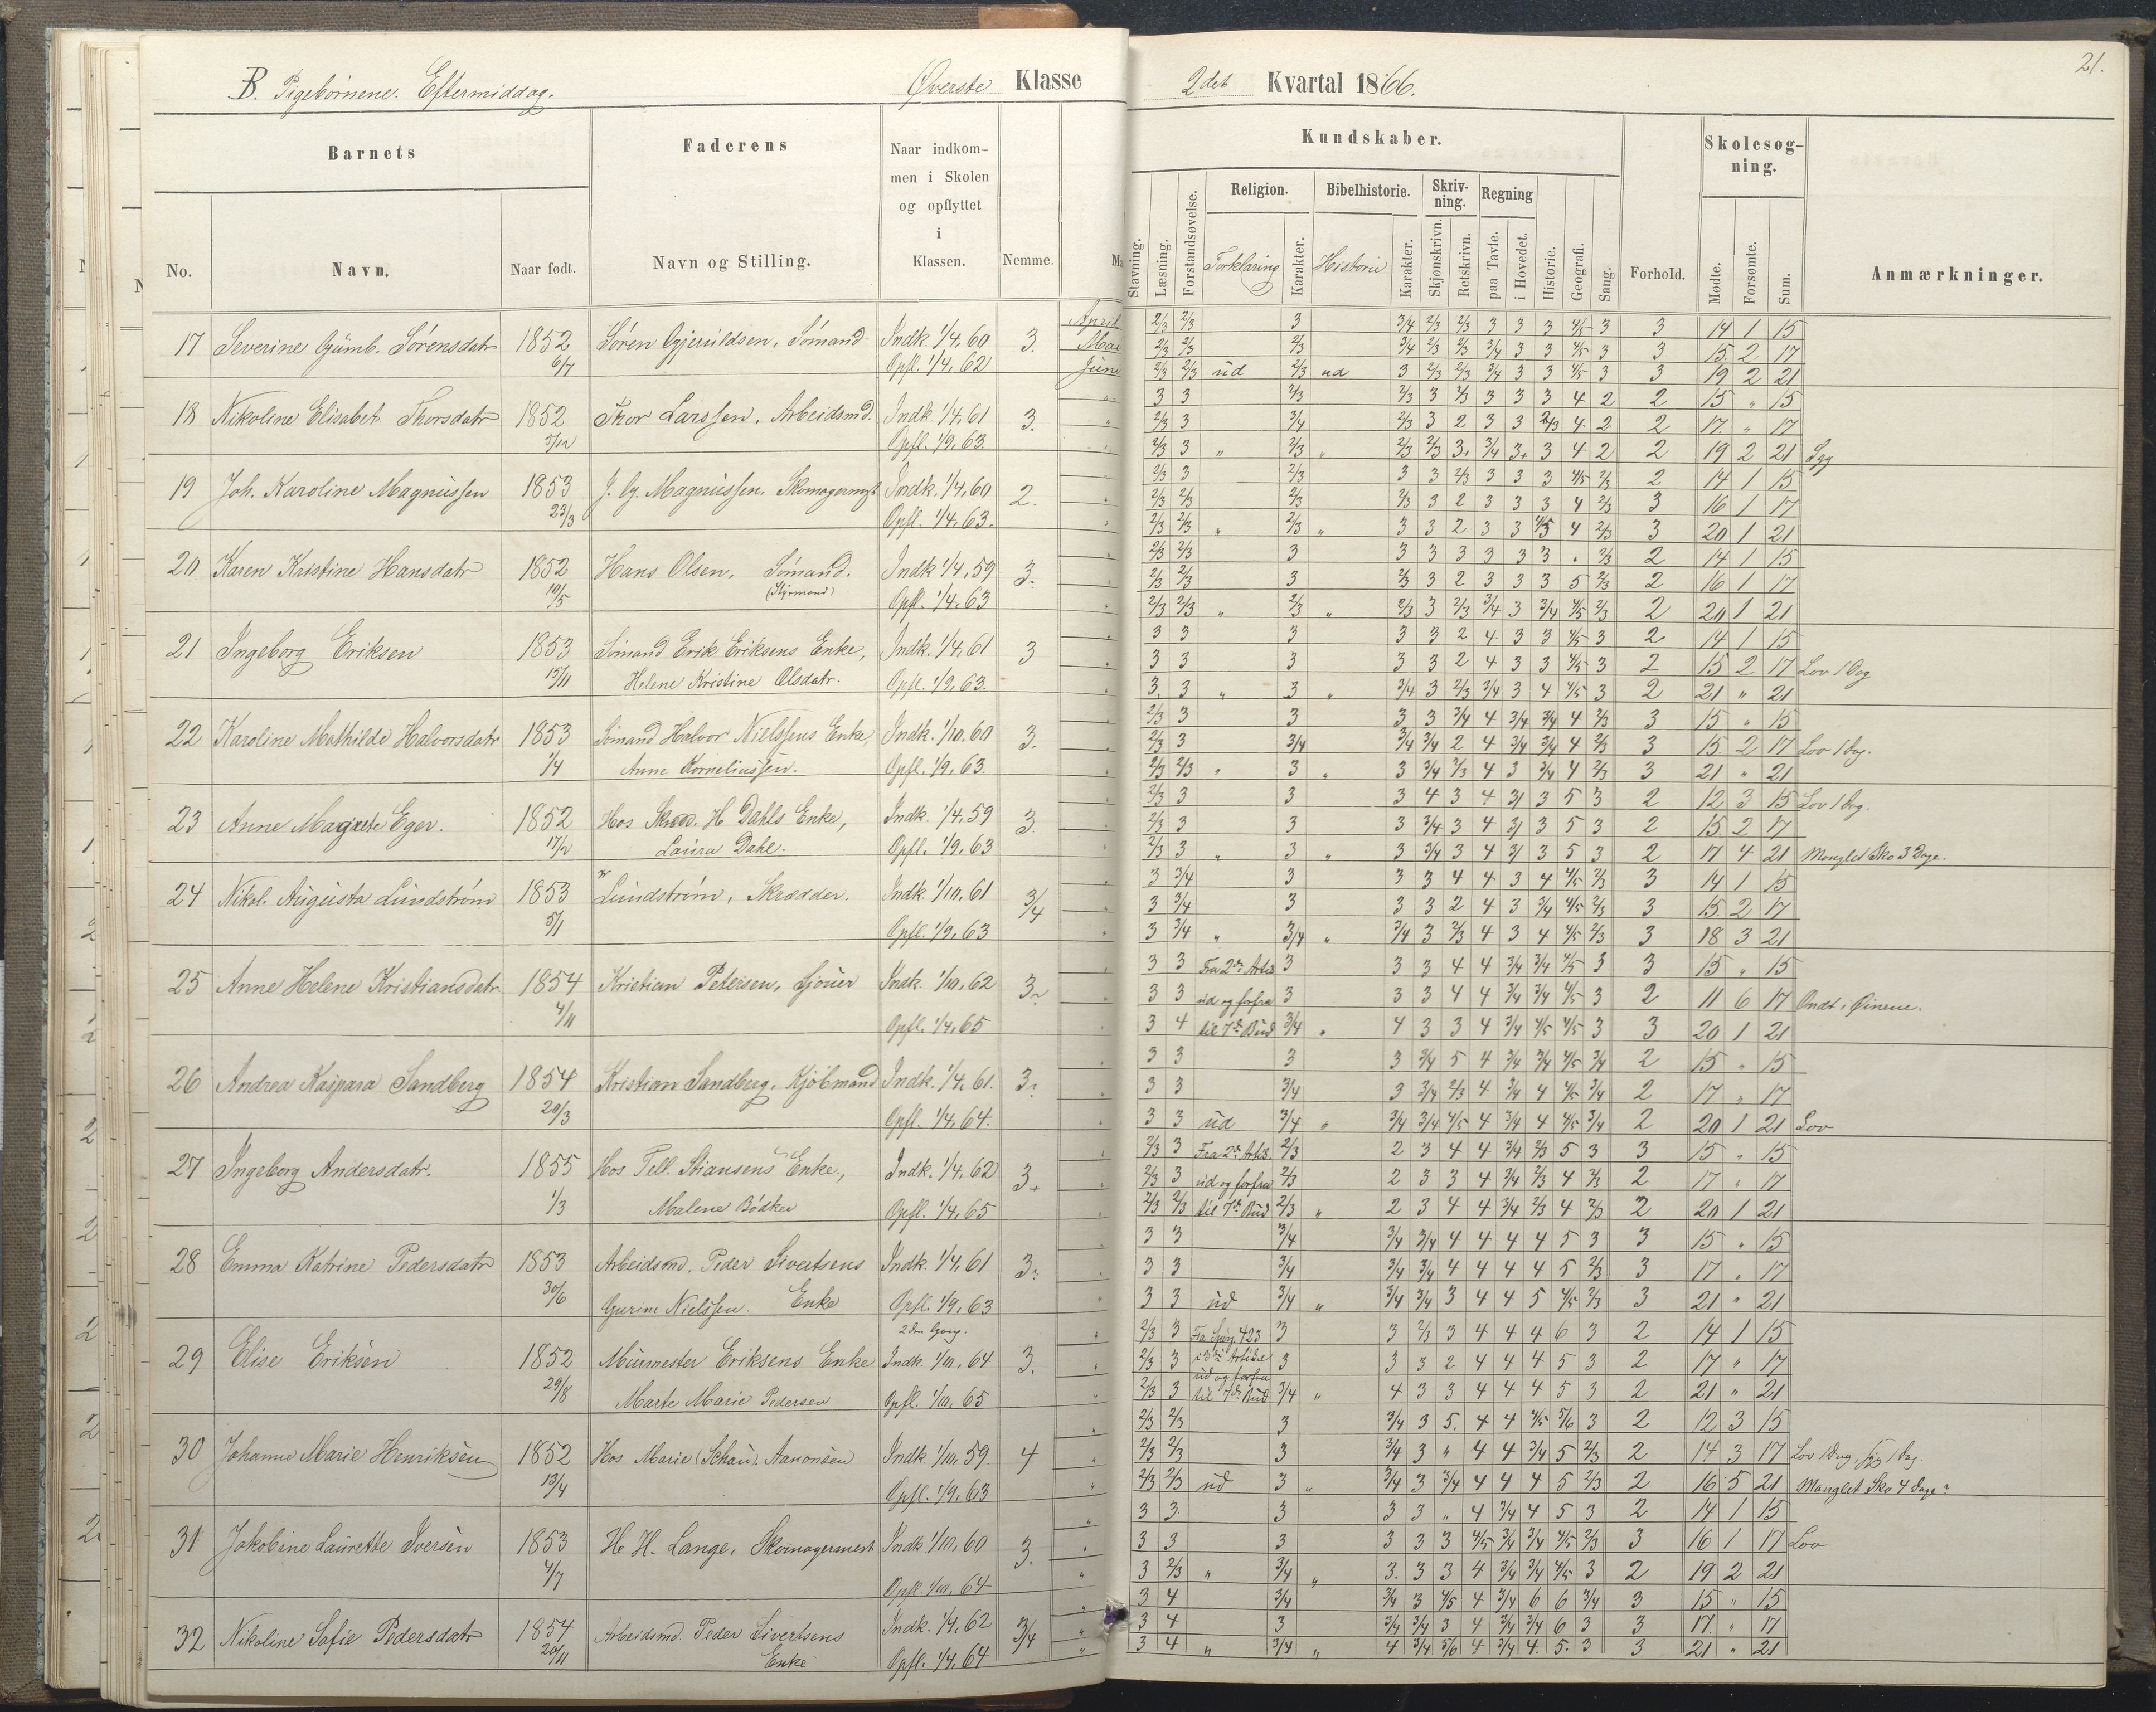 B. Pigebørnene. Eftermiddag. Øverste Klasse
2det Kvartal 1866. 21.
Barnets
Faderens
Naar indkommen i Skolen og opflyttet i Klassen.
Nemme.
No. Navn. Naar født. Navn og Stilling.
Kundskaber.
Skolesøgning.
Stavning. Læsning. Forstandsøvelse. Religion. Bibelhistorie. Skrivning. Regning Historie. Geografi. Sang. Forhold. Mødte. Forsømte. Sum. Anmærkninger.
Forklaring Karakter. Historie Karakter. Skjønskrivn. Retskrivn. paa Tavle. i Hovedet.
17 Severine Gumb. Sørensdatr 1852 6/7 Søren Gjeruldsen, Sømand Indk. 1/4. 60 Opfl. 1/4. 62 3.
April 2/3 2/3 3 3/4 2/3 2/3 3 3 3 4/5 3 3 14 1 15
Mai 2/3 2/3 2/3 3/4 2/3 2/3 3/4 3 3 4/5 3 3 15 2 17
Juni 2/3 2/3 ud 2/3 ud 3 2/3 2/3 3/4 3 3 4/5 3 3 19 2 21
18 Nikoline Elisabet Thorsdatr 1852 5/12 Thor Larssen, Arbeidsmd. Indk. 1/4. 61 Opfl. 1/9. 63. 3.
3 3 2/3 2/3 3 2/3 3 3 3 4 2 2 15 " 15
2/3 3 3/4 2/3 3 2 3 3 2/3 4 2 2 17 " 17
2/3 3 " 2/3 " 2/3 2/3 3+ 3/4 3+ 3 4 2 2 19 2 21 Syg
19 Joh. Karoline Magnussen 1853 23/3 J. G. Magnussen. Skomagermst Indk. 1/4. 60 Opfl. 1/4. 63. 2.
2/3 3 2/3 3 3 2/3 3 3 3 4/5 2/3 2 14 1 15
2/3 2/3 2/3 2/3 3 2 3 3 3 4 2/3 3 16 1 17
2/3 2/3 " 2/3 " 3 3 2 3 3 4/5 4 2/3 3 20 1 21
20 Karen Kristine Hansdatr 1852 10/5 Hans Olsen, Sømand. (Styrmand) Indk 1/4. 59 Opfl. 1/4. 63 3.
2/3 2/3 3 3 3 3 3 3 3 . 2/3 2 14 1 15
2/3 2/3 3 2/3 3 2 3 3 3 5 2/3 2 16 1 17
2/3 2/3 " 2/3 " 2/3 3 2/3 3/4 3 3/4 4/5 2/3 2 20 1 21
21 Ingeborg Eriksen 1853 15/11 Sømand Erik Eriksens Enke, Helene Kristine Olsdatr. Indk. 1/4. 61 Opfl. 1/9. 63. 3
3 3 3 3 3 2 4 3 3 4/5 3 2 14 1 15
3 3 3 3 3 2 4 3 3 4/5 3 2 15 2 17 Lov 1 Dag
3. 3 " 3 " 3/4 3 2/3 3/4 3 4 4/5 3 2 21 " 21
22 Karoline Mathilde Halvorsdatr 1853 1/4 Sømand Halvor Nielssens Enke, Anne Korneliussen. Indk. 1/10. 60 Opfl. 1/9. 63. 3.
2/3 3 3 3 3 3/4 4 3/4 3/4 4 2/3 3 15 " 15
2/3 3 3/4 3/4 3/4 2 4 3/4 3/4 4 2/3 3 15 2 17 Lov 1 Dag.
2/3 2/3 " 3 " 3 3/4 2/3 4 3 3/4 4 2/3 3 21 " 21
23 Anne Magrete Eger. 1852 17/2 Hos Skred. H Dahls Enke, Laura Dahl. Indk. 1/4. 59 Opfl. 1/9. 63 3.
2/3 3 3 3 4 3 4 3/ 3 5 3 2 12 3 15 Lov 1 Dag.
2/3 3 3 3 3/4 3 4 3/ 3 5 3 2 15 2 17
2/3 3 " 3 " 3 3/4 3 4 3/ 3 5 3 2 17 4 21 Manglet Sko 3 Dage.
24 Nikol. Augusta Lundstrøm 1853 5/1 Lundstrøm, Skrædder. Indk. 1/10. 61 Opfl. 1/9. 63 3/4
3 3/4 3 3 3 4 4 3 4 4/5 2/3 3 14 1 15
3 3/4 3 3 3 2 4 3 3/4 4/5 2/3 3 15 2 17
3 3/4 " 3/4 " 3/4 3 2/3 4 3 4 4/5 2/3 3 18 3 21
25 Anne Helene Kristiansdatr 1854 4/11 Kristian Petersen, Gjøuer Indk. 1/10. 62 Opfl. 1/4. 65 3
3 3 Fra 2den Artik 3 3 3 4 4 3/4 3/4 4/5 3 3 15 " 15
3 3 ud og forfra 3 3 3 4 4 3/4 3/4 4/5 3 2 11 6 17 Ondt i Øinene.
3 4 til 7de Bud 3/4 " 4 3 3 4 3/4 4/5 4/5 3 3 20 1 21
26 Andrea Kaspara Sandberg 1854 20/3 Kristian Sandberg, Kjøbmand Indk. 1/4. 61. Opfl. 1/4. 64. 3
3 3 3 3 3/4 5 4 3/4 3/4 4/5 3/4 2 15 " 15
3 3 3/4 3 3/4 2/3 4 3/4 4 4/5 3/4 2 17 " 17
3 3 ud 3/4 " 3/4 3/4 4/5 4 3/4 4 4/5 3/4 2 20 1 21 Lov
27 Ingeborg Andersdatr. 1855 1/3 Hos Tell. Stiansens Enke, Malene Bødker Indk. 1/4. 62 Opfl. 1/4. 65 3+
2/3 3 Fra 2den Artik 2/3 2 3 4 4 3/4 2/3 5 3 3 15 " 15
2/3 3 ud og forfra 2/3 2 3 3 4 3/4 2/3 4 2/3 2 17 " 17
2/3 2/3 til 7de Bud 2/3 " 2 3 4 4 3/4 2/3 4 2/3 2 20 1 21
28 Emma Katrine Pedersdatr 1853 30/6 Arbeidsmd. Peder Sivertsens Enke Gurine Nielssen. Indk. 1/4. 61 Opfl. 1/9. 63 3
3 3 3/4 3/4 3/4 4 4 4 4 5 3 3 15 " 15
3 3 3/4 3/4 3/4 4 4 4 4 5 2/3 3 17 " 17
3 3 ud 3/4 " 3/4 3/4 3 4 4 5 4/5 2/3 3 21 " 21
29 Elise Eriksen 1852 29/8 Murmester Eriksens Enke Marte Marie Pedersen 2den Gang. Indk. 1/10. 64 Opfl. 1/10. 65 3.
2/3 3 Fra Spørg. 423 3 3 2/3 3 4 4 4 6 3 2 14 1 15
2/3 3 i 3die Artikel 3 3 3 2 4 4 4 5 3 2 17 " 17
2/3 3 ud og forfra til 7de Bud 3/4 " 4 3 3 4 4 4 5 3 2 21 " 21
30 Johanne Marie Henriksen 1852 13/4 Hos Marie (Schau) Aanonsen Indk. 1/10. 59. Opfl. 1/9. 63 4
2/3 2/3 3 3/4 3 5. 4 4 4/5 5/6 3 2 12 3 15
2/3 2/3 3 3/4 3 " 4 4 3/4 5 2/3 2 14 3 17 Lov 1 Dag, syg 1 Dag.
2/3 2/3 ud 3 " 3/4 3 3/4 4 4 4 5 2/3 2 16 5 21 Manglet Sko 4 Dage
31 Jakobine Laurette Iversen 1853 4/7 H. H. Lange, Skomagermest Indk. 1/10. 60 Opfl. 1/10. 64 3.
3 3 3 3 3 " 4 3/4 4 5 3 2 14 1 15
3 3 3 3 3 3 4/5 3/4 3/4 4/5 2/3 3 16 1 17 Lov
3 2/3 " 3/4 " 3. 3 3 4 3/4 3/4 4/5 3 2 19 2 21
32 Nikoline Sofie Pedersdatr 1854 20/11 Arbeidsmd. Peder Sivertsens Enke Indk. 1/4. 62 Opfl. 1/4. 64 3/4
3 4 3/4 3/4 3 4/5 4 3/4 6 6 3/4 3 15 " 15
3 4 3 3/4 3/4 3 4 3/4 3/4 6 3 3 17. " 17
3 4 " 3/4 " 4 3/4 5/6 4 3/4 4. 5. 3 3 21 " 21